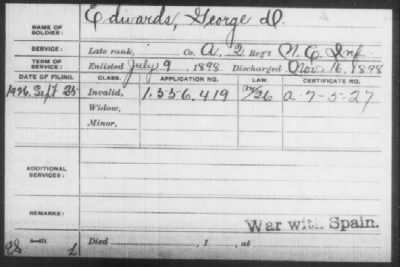 NAME OF SOLDIER: Edwards, George D.
SERVICE: Late rank, Co. A, 2 Reg't N.C. Inf.
TERM OF SERVICE: Enlisted July 9, 1898 Discharged Nov. 16, 1898
DATE OF FILING. CLASS. APPLICATION NO. LAW. CERTIFICATE NO.
1926, Sept 25 Invalid, 1,556,419 A 7-5-27
Widow,
Minor,
ADDITIONAL SERVICES:
REMARKS: War with Spain.
Died , 1 , at